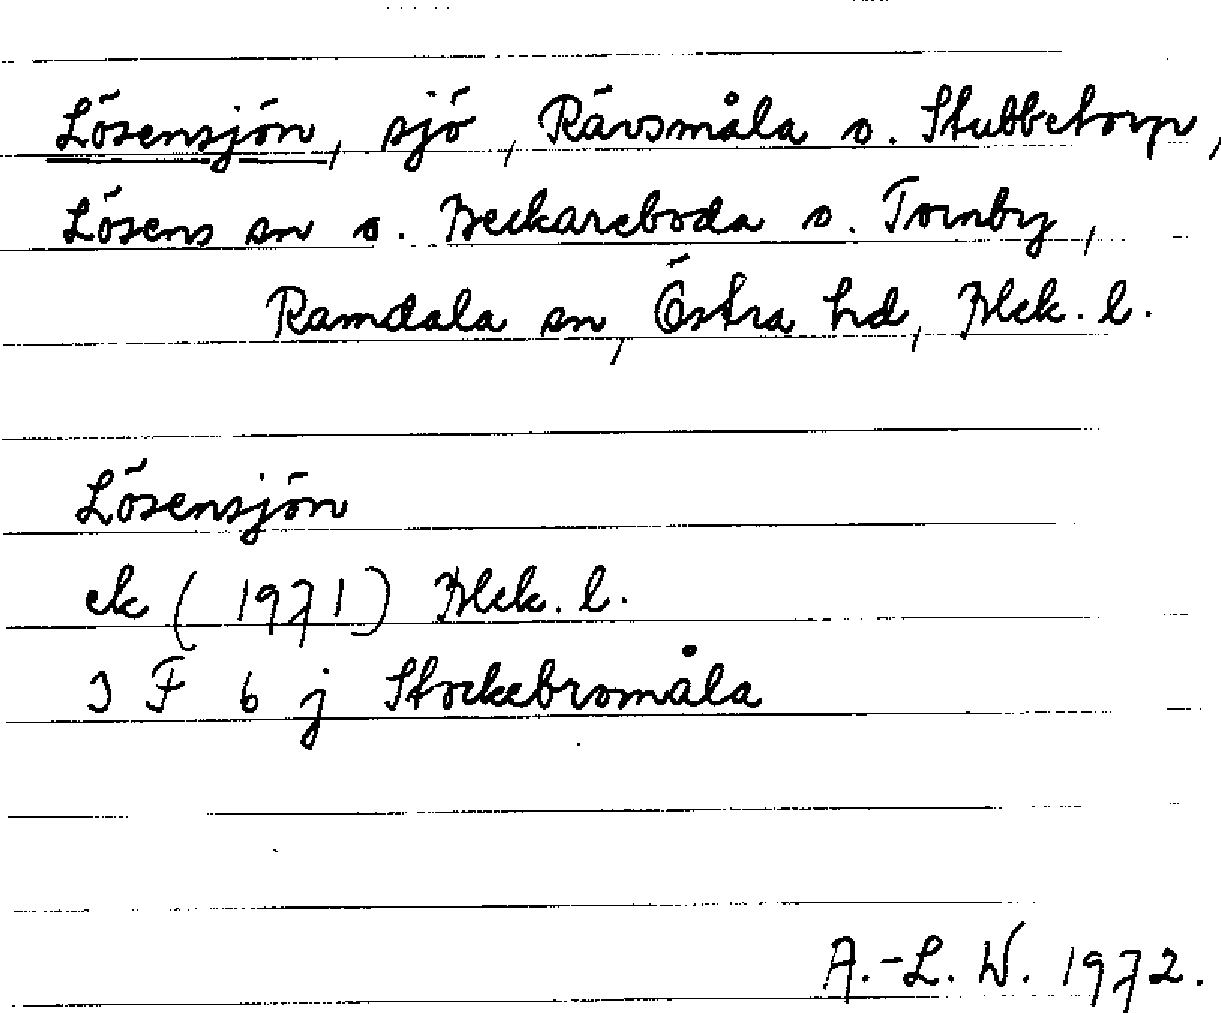 Lösensjön, sjö, Rävsmåla o. Stubbetorp,
Lösens sn o. Beckareboda o. Tornby,
Ramdala sn, Östra hd, Blek. l.
Lösensjön
ek (1971) Blek. l.
3 F 6 j Stockebromåla
A.-L. W. 1972.